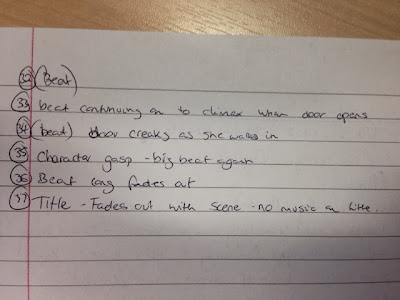 32 (Beat)
33 beat continuing on to climax when door opens
34 (beat) door creaks as she walks in
35 Character gasp - big beat again
36 Beat fades out
37 Title - Fades out with scene - no music on title.